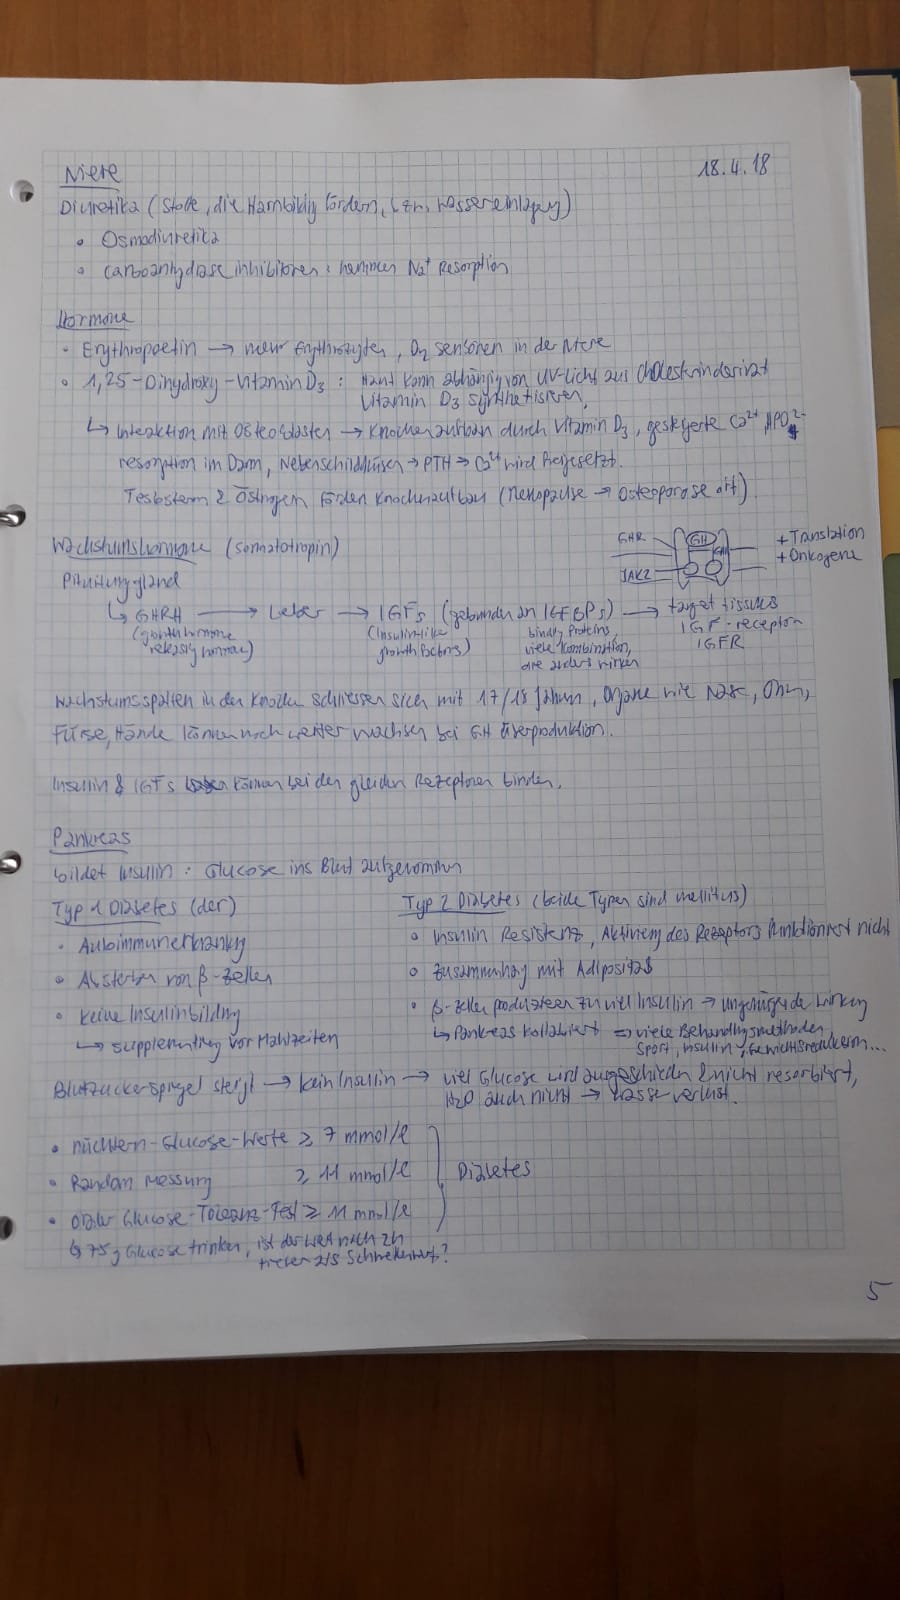 Niere
18.4.18
Diuretika (Stoffe, die Harnbildg fördern, Wassereinlagg)
• Osmodiuretika
• Carboanhydrase inhibitoren: hemmen Na⁺ Resorption
Hormone
• Erythropoetin → mehr Erythrozyten, O₂ sensoren in der Niere
• 1,25-Dihydroxy-Vitamin D₃: Haut kann abhängig von UV-Licht aus Cholesterinderivat
Vitamin D₃ synthetisieren,
↳ Interaktion mit Osteoblasten → Knochenaufbau durch Vitamin D₃, gesteigerte Ca²⁺, HPO₄²⁻
resorption im Darm, Nebenschilddrüsen → PTH → Ca²⁺ wird freigesetzt.
Testosteron & Östrogen fördern Knochenaufbau (Menopause → Osteoporose oft)
Wachstumshormone (somatotropin)
GHR
GH
JAK2
+ Translation
+ Onkogene
Pituitary gland
↳ GHRH → Leber → IGFs (gebunden an IGFBPs) → target tissues
(growth hormone releasing hormone)
(Insulin like growth factors)
binding Proteins, viele Kombination, die anders wirken
IGF-receptor
IGFR
Wachstumsspalten in den Knochen schliessen sich mit 17/18 Jahren, Organe wie Nase, Ohren,
Füsse, Hände können noch weiter wachsen bei GH Überproduktion.
Insulin & IGFs können bei den gleichen Rezeptoren binden.
Pankreas
bildet Insulin: Glucose ins Blut aufgenommen
Typ 1 Diabetes (der)
• Autoimmunerkrankg
• Absterben von β-Zellen
• Keine Insulinbildng
↳ Supplementirg vor Mahlzeiten
Typ 2 Diabetes (beide Typen sind mellitus)
• Insulin Resistenz, Aktivierg des Rezeptors funktioniert nicht
• Zusammenhag mit Adipositas
• β-Zellen produzieren zu viel Insulin → ungenügende Wirkung
↳ Pankreas kollabiert ⇒ viele Behandlgsmethoden
Sport, Insulin, Gewichtsreduktion...
Blutzuckerspiegel steigt → kein Insulin → viel Glucose wird ausgeschieden & nicht resorbiert,
H₂O auch nicht → Wasserverlust.
• nüchtern-Glucose-Werte ≥ 7 mmol/l
• Random Messung ≥ 11 mmol/l
• oraler Glucose-Toleranz-Test ≥ 11 mmol/l
Diabetes
↳ 75g Glucose trinken, ist der Wert nach 2h
als Schwellenwert?
5